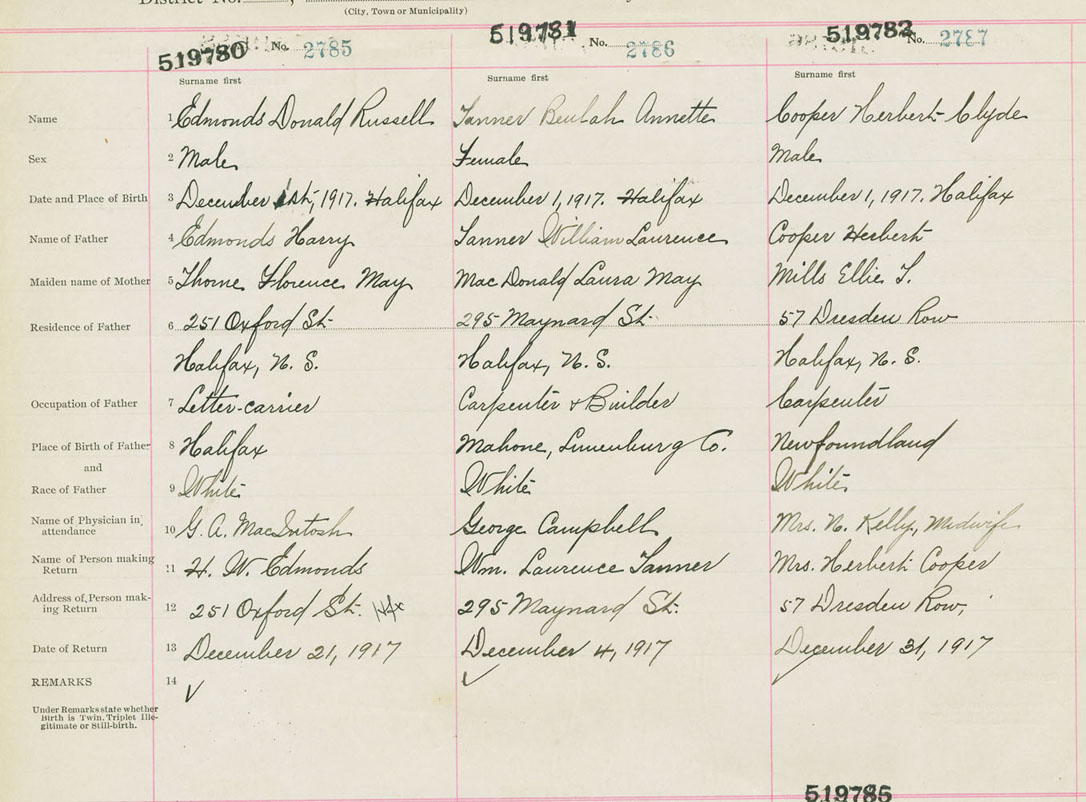 District No.
(City, Town or Municipality)
519780 No. 2785 519781 No. 2786 519782 No. 2787
Surname first Surname first Surname first
Name 1 Edmonds Donald Russell Tanner Beulah Annette Cooper Herbert Clyde
Sex 2 Male Female Male
Date and Place of Birth 3 December 1st, 1917. Halifax December 1, 1917. Halifax December 1, 1917. Halifax
Name of Father 4 Edmonds Harry Tanner William Laurence Cooper Herbert
Maiden name of Mother 5 Thorne Florence May Mac Donald Laura May Mills Ellie T.
Residence of Father 6 251 Oxford St. 295 Maynard St. 57 Dresden Row
Halifax, N. S. Halifax, N. S. Halifax, N. S.
Occupation of Father 7 Letter-carrier Carpenter & Builder Carpenter
Place of Birth of Father 8 Halifax Mahone, Lunenburg Co. Newfoundland
and
Race of Father 9 White White White
Name of Physician in attendance 10 G. A. MacIntosh George Campbell Mrs. N. Kelly, Midwife
Name of Person making Return 11 H. W. Edmonds Wm. Laurence Tanner Mrs. Herbert Cooper
Address of Person making Return 12 251 Oxford St. Hfx 295 Maynard St. 57 Dresden Row,
Date of Return 13 December 21, 1917 December 4, 1917 December 31, 1917
REMARKS 14 ✓ ✓ ✓
Under Remarks state whether
Birth is Twin, Triplet Ille-
gitimate or Still-birth.
519785